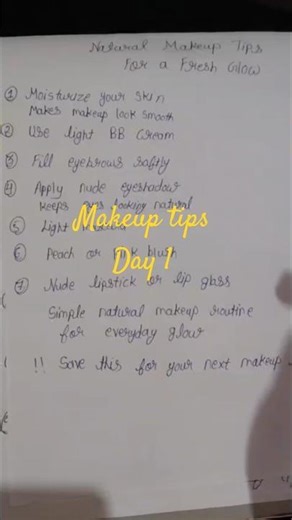 Natural Makeup Tips
For a Fresh Glow
① Moisturize your skin
Makes makeup look smooth
② Use light BB Cream
③ Fill eyebrows softly
④ Apply nude eyeshadow
Keeps eyes looking natural
Makeup tips
⑤ Light
⑥ Peach or pink blush
Day 1
⑦ Nude lipstick or lip glass
Simple natural makeup routine
for everyday glow
!! Save this for your next makeup